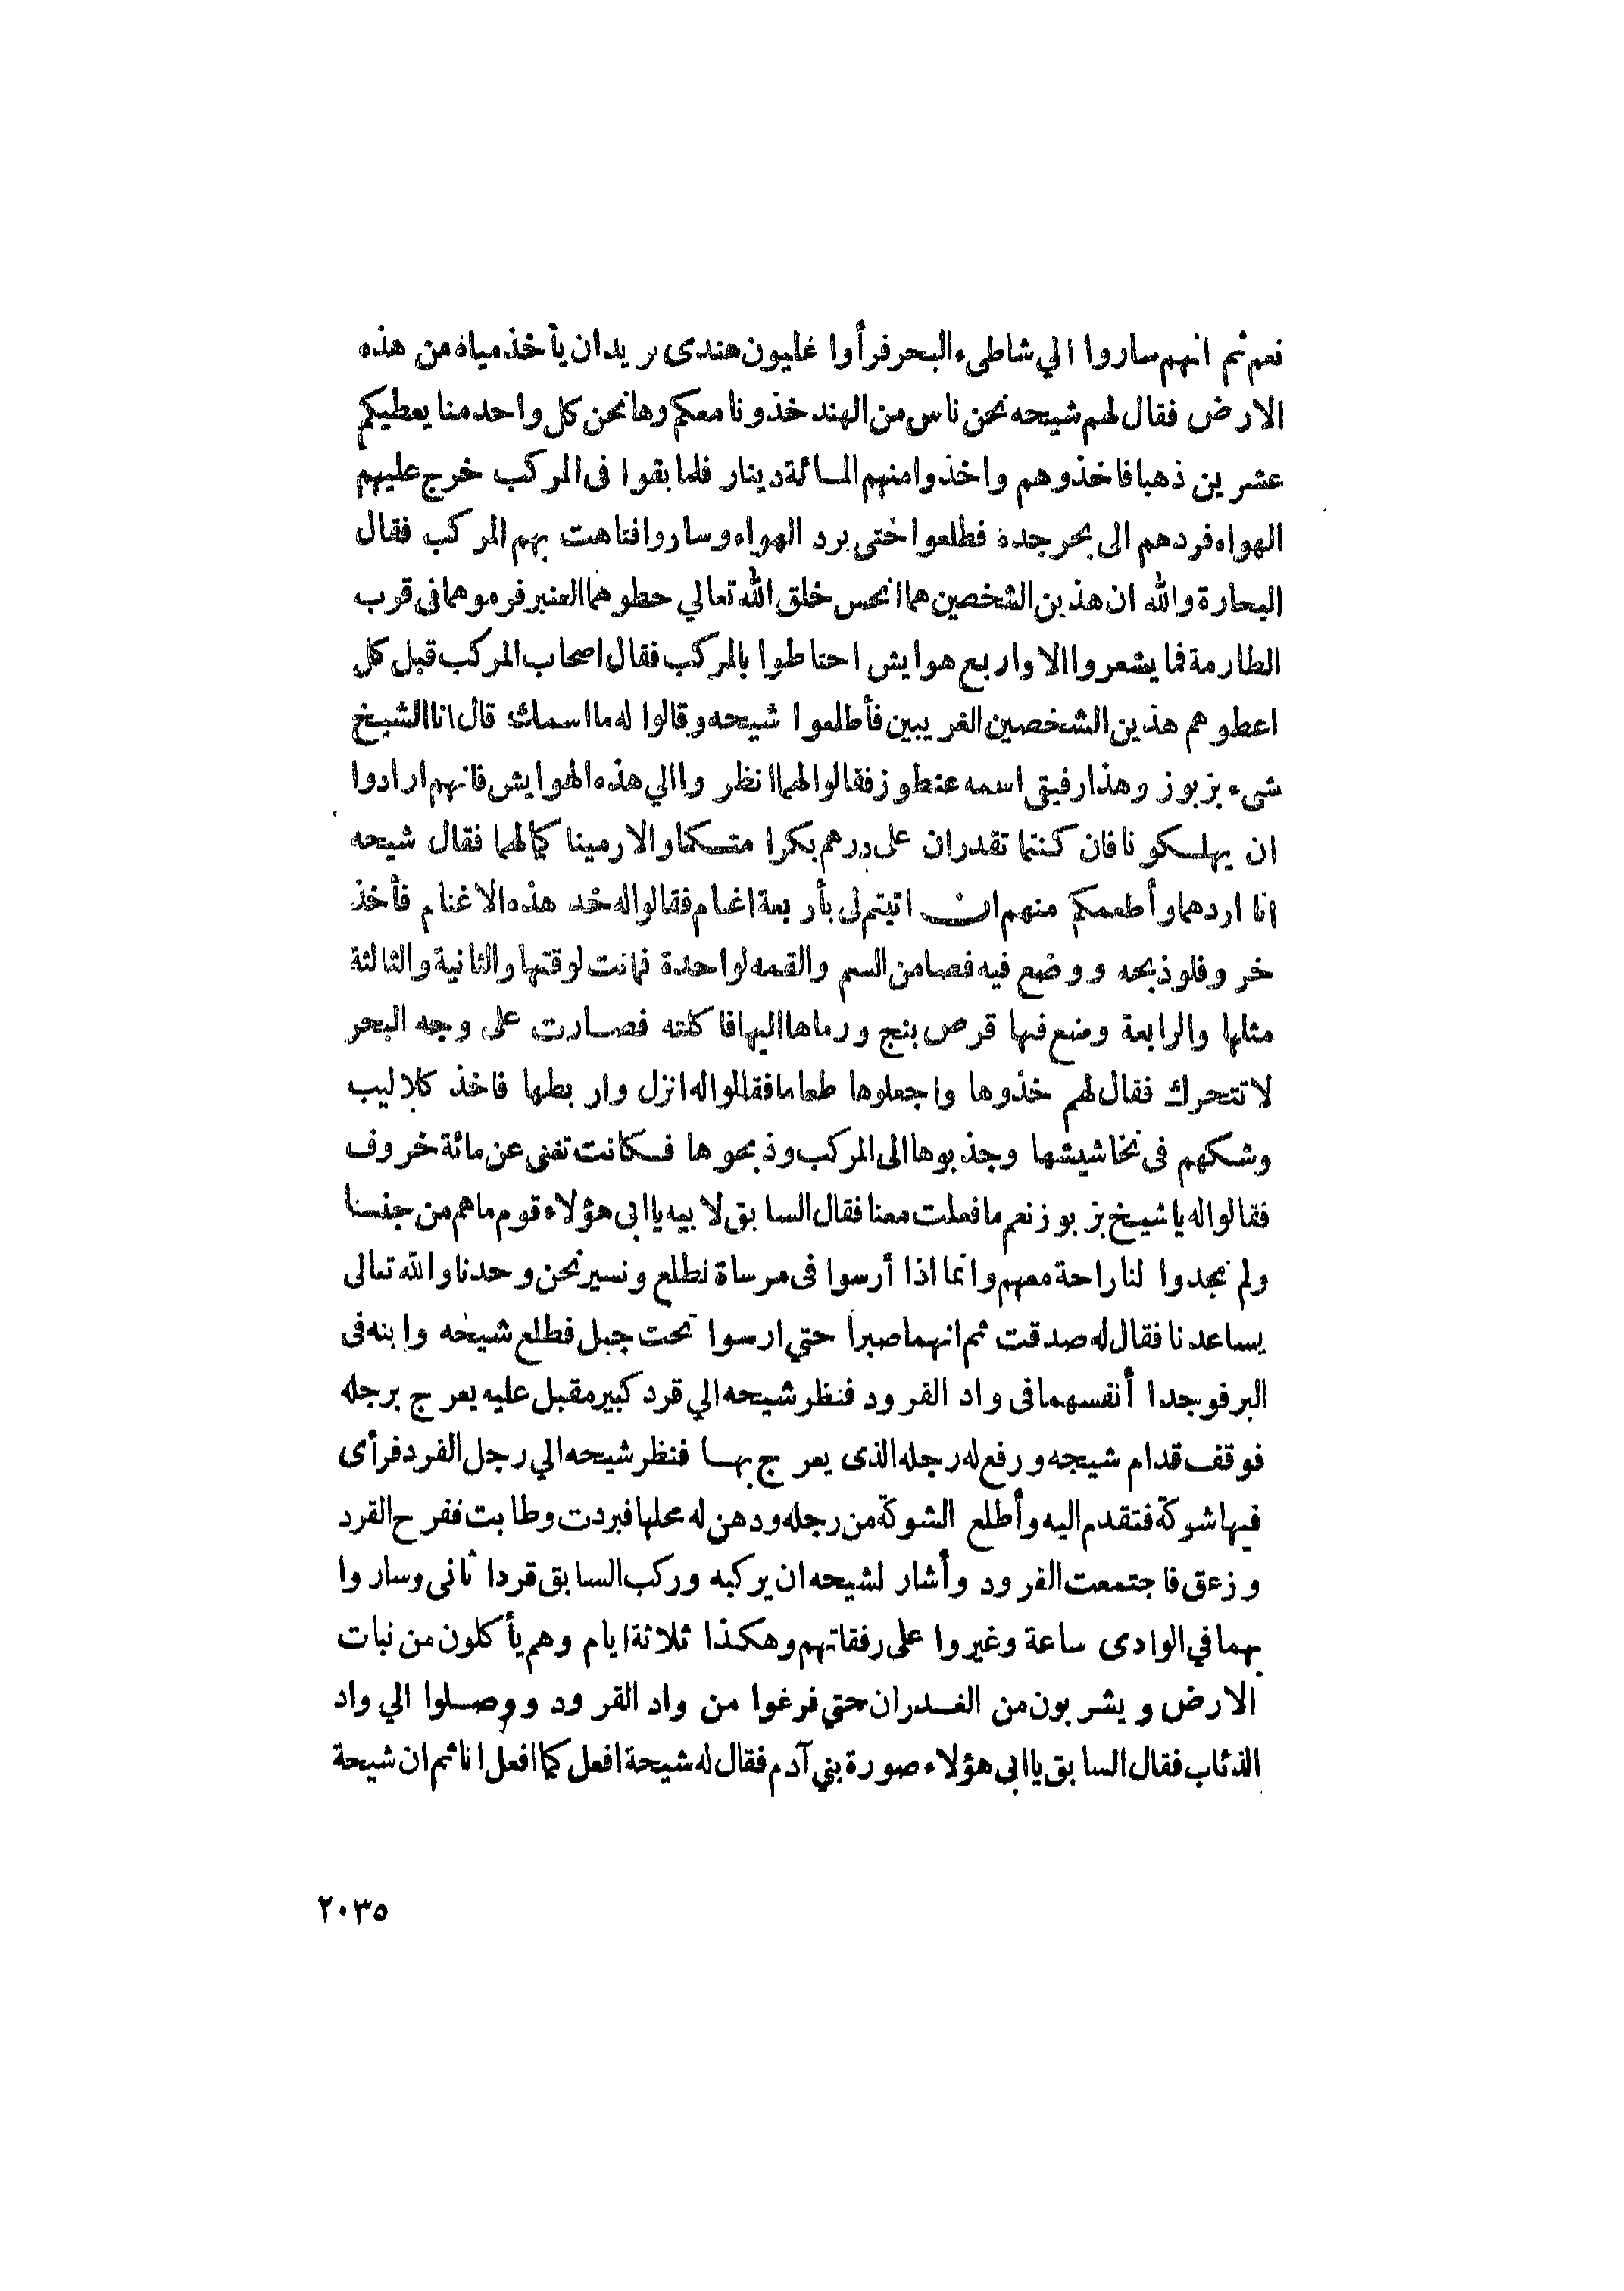 نعم ثم انهم ساروا الي شاطىء البحر فرأوا غليون هندى يريد ان يأخذ مياه من هذه
الارض فقال لهم شيحه نحن ناس من الهند خذونا معكم وها نحن كل واحد منا يعطيكم
عشرين ذهبا فاخذوهم واخذوا منهم المائة دينار فلما بقوا فى المركب خرج عليهم
الهواء فردهم الى بحر جده فطلعوا حتى برد الهواء وساروا فتاهت بهم المركب فقال
البحارة والله ان هذين الشخصين هما انحس خلق الله تعالي حطوهما العنبر فرموهما فى قرب
الطارمة فما يشعروا الا واربع هوايش احتاطوا بالمركب فقال اصحاب المركب قبل كل
اعطوهم هذين الشخصين الغريبين فأطلعوا شيحه وقالوا له ما اسمك قال انا الشيخ
شىء بزبوز وهذا رفيقى اسمه عنطوز فقالوا لهما انظروا الي هذه الهوايش فانهم ارادوا
ان يهلكونا فان كنتما تقدران على ردهم بكرا متكما والا رميناكما لهما فقال شيحه
انا اردهما وأطعمكم منهم ان اتيتم لى بأربعة اغنام فقالوا له خد هذه الاغنام فأخذ
خروف وذبحه ووضع فيه فصا من السم والقمه لواحدة فماتت لوقتها والثانية والثالثة
مثلها والرابعة وضع فيها قرص بنج ورماها اليها فاكلته فصارت على وجه البحر
لا تتحرك فقال لهم خذوها واجعلوها طعاما فقالوا له انزل واربطها فاخذ كلاليب
وشكهم فى نخاشيشها وجذبوها الى المركب وذبحوها فكانت تغنى عن مائة خروف
فقالوا له يا شيخ بزبوز نعم ما فعلت معنا فقال السابق لابيه يا ابى هؤلاء قوم ما هم من جنسنا
ولم نجدوا لنا راحة معهم وانما اذا أرسوا فى مرساة نطلع ونسير نحن وحدنا والله تعالى
يساعدنا فقال له صدقت ثم انهما صبرا حتي ارسوا تحت جبل فطلع شيحه وابنه فى
البر فوجدا أنفسهما فى واد القرود فنظر شيحه الي قرد كبير مقبل عليه يعرج برجله
فوقف قدام شيحه ورفع له رجله الذى يعرج بها فنظر شيحه الي رجل القرد فرأى
فيها شوكة فتقدم اليه وأطلع الشوكة من رجله ودهن له محلها فبردت وطابت ففرح القرد
وزعق فاجتمعت القرود وأشار لشيحه ان يركبه وركب السابق قردا ثانى وساروا
بهما في الوادى ساعة وغيروا على رفقاتهم وهكذا ثلاثة ايام وهم يأكلون من نبات
الارض ويشربون من الغدران حتي فرغوا من واد القرود ووصلوا الي واد
الذئاب فقال السابق يا ابى هؤلاء صورة بني آدم فقال له شيحة افعل كما افعل انا ثم ان شيحة
٢٠٣٥